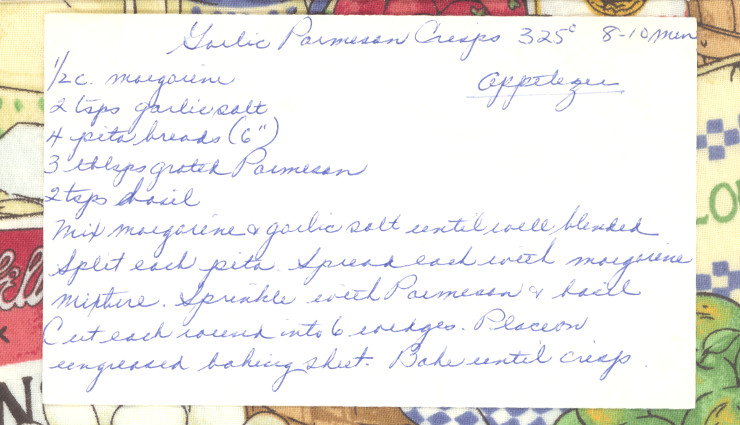 Garlic Parmesan Crisps 325° 8-10 min
Appetizer
1/2 c. margarine
2 tsps garlic salt
4 pita breads (6")
3 tblsps grated Parmesan
2 tsps basil
Mix margarine & garlic salt until well blended
Split each pita. Spread each with margarine
mixture. Sprinkle with Parmesan & basil
Cut each round into 6 wedges. Place on
ungreased baking sheet. Bake until crisp.